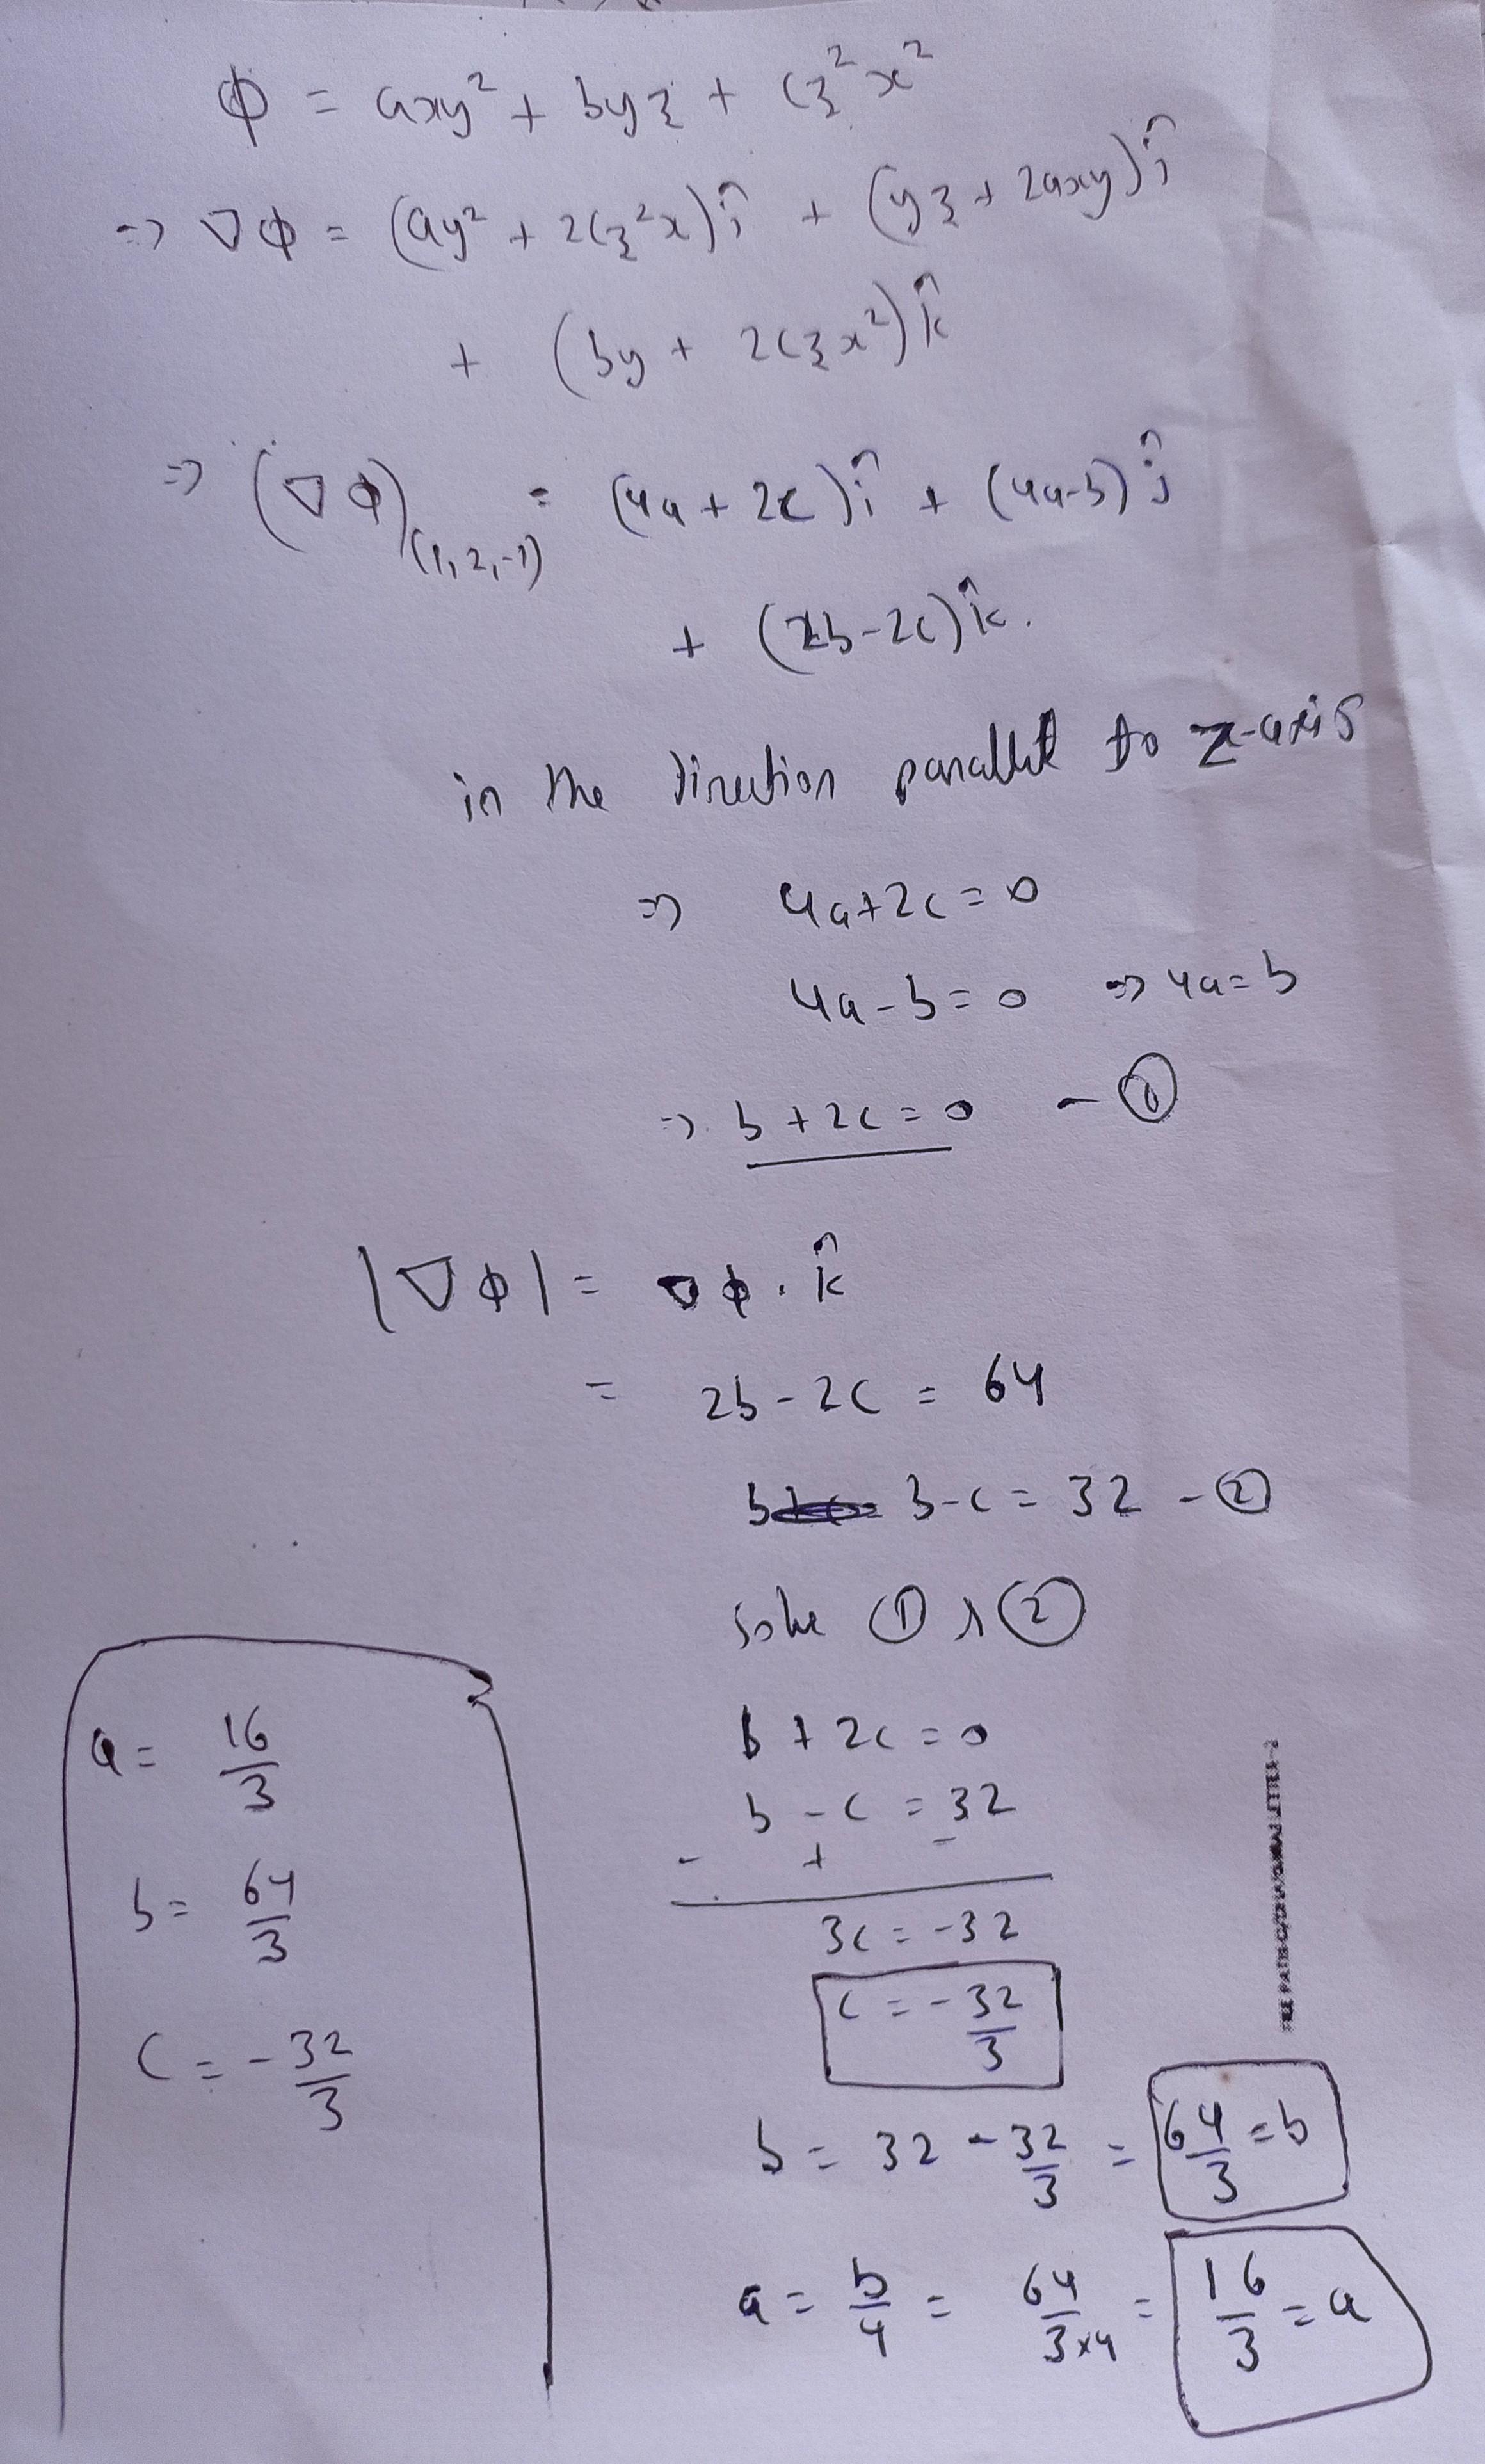 ϕ = axy² + byz + cz²x²
⇒ ∇ϕ = (ay² + 2cz²x)î + (yz + 2axy)ĵ
+ (by + 2czx²)k̂
⇒ (∇ϕ)(1,2,-1) = (4a + 2c)î + (4a-b)ĵ
+ (2b-2c)k̂.
in the direction parallel to z-axis
⇒ 4a+2c=0
4a-b=0 ⇒ 4a=b
⇒ b+2c=0 - ①
|∇ϕ| = ∇ϕ . k̂
= 2b-2c = 64
b-c = 32 - ②
solve ① & ②
b + 2c = 0
b - c = 32
- + -
3c = -32
c = -32/3
b = 32 - 32/3 = 64/3 = b
a = b/4 = 64/3×4 = 16/3 = a
a = 16/3
b = 64/3
c = -32/3